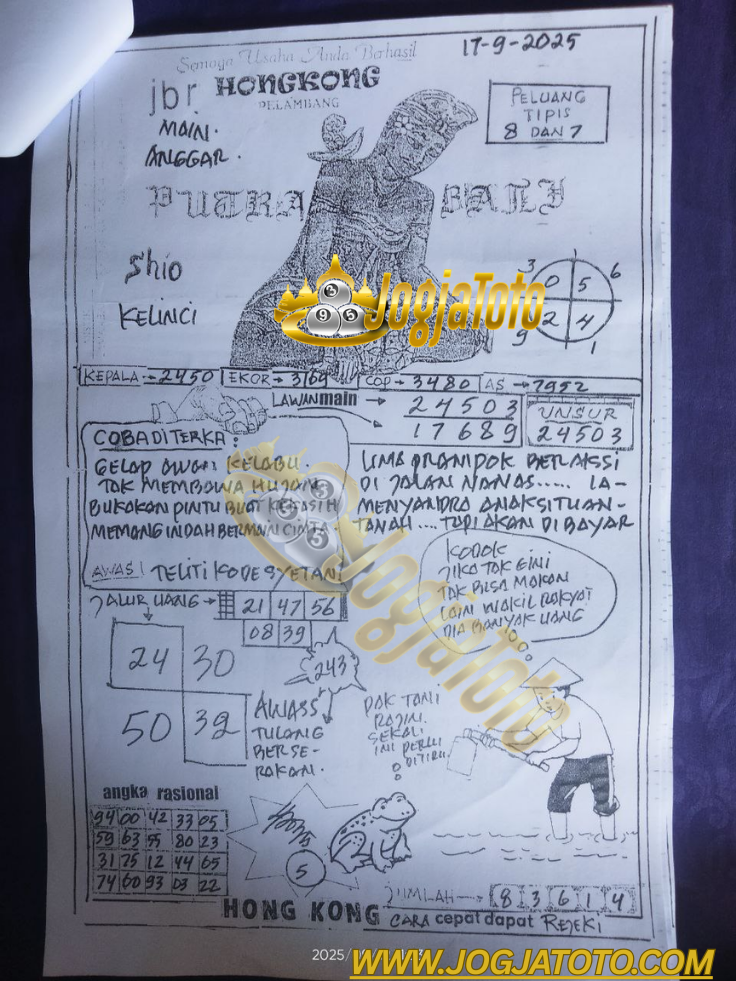 Semoga Usaha Anda Berhasil
17-9-2025
jbr HONGKONG
PELAMBANG
MAIN.
ANGGAR.
PELUANG
TIPIS
8 DAN 7
PUTRA BALI
Shio
KELINCI
3 1 6
0 5
2 4
9 1
JogjaToto
KEPALA → 2450 EKOR → 3169 COP → 3480 AS → 7952
LAWAN main → 24503
17689
UNSUR
24503
COBA DITERKA :
GELAP AWAN KELABU.
TAK MEMBAWA HUJAN
BUKAKAN PINTU BUAT KEKASIH
MEMANG INDAH BERMAIN CINTA
AWAS! TELITI KODE SYETAN
LIMA PRAMPOK BERAKSI
DI JALAN NANAS..... LA-
MENYANDRA ANAKSITUAN-
TANAH .... TAPI AKAN DI BAYAR
KODOK
JIKA TAK GINI
TAK BISA MAKAN
LAIN WAKIL RAKYAT
DIA BANYAK UANG
JALUR UANG → 21 47 56
08 39
24 30
50 39
243
AWASS
TULANG
BERSE-
RAKAN.
PAK TANI
RAJIN.
SEKALI
INI PERLU
DITIRU
JogjaToto
angka rasional
94 00 42 33 05
59 63 55 80 23
31 75 12 44 65
74 60 93 03 22
5
JUMLAH → 8 3 6 1 4
HONG KONG CARA cepat dapat REJEKI
2025/
WWW.JOGJATOTO.COM